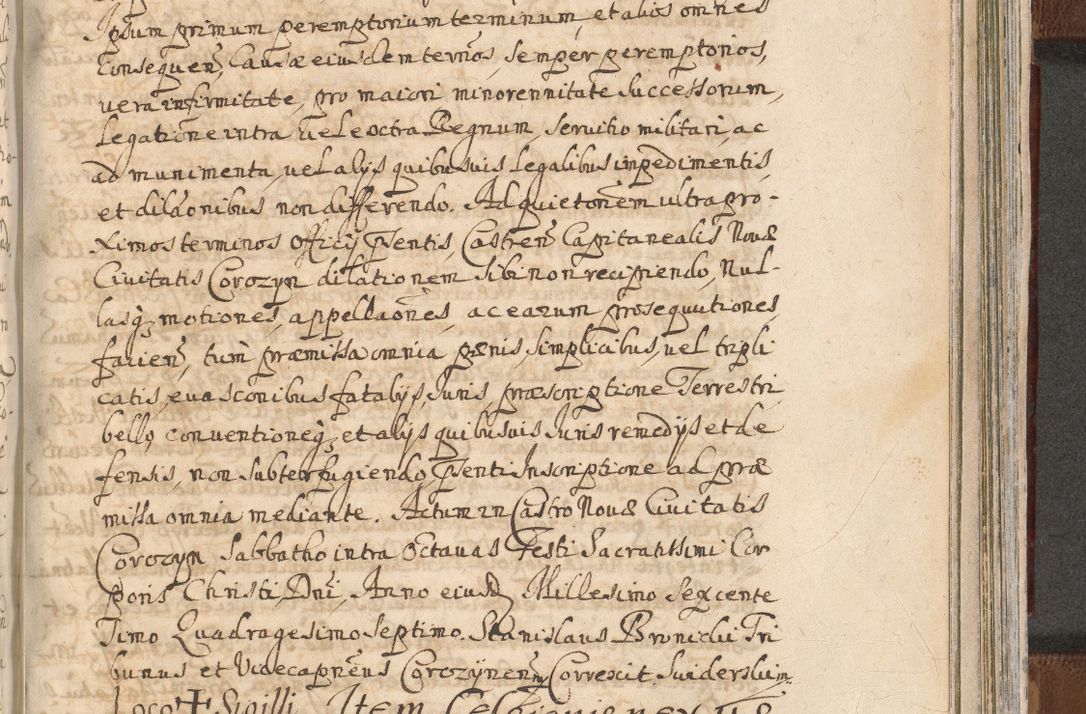 Ipsum primum peremptorium terminum, et alios omnes
Consequen, Causæ eiusdem termos, semper peremptorios,
vera infirmitate, pro maiori minorennitate successorum,
Legatione intra vel extra Regnum, servitio militari, ac
ad munimenta, vel alys quibusvis legalibus impedimentis,
et dilaonibus non differendo. Ad quietonem ultra pro-
ximos terminos Officy Psentis, Castren Capitanealis Novæ
Civitatis Corozyn dilationem sibi non recipiendo, Nul-
lasq motiones, appellaones, ac earum prosequutiones,
facien, tum præmissa omnia pænis, simplicibus, vel tripli
catis, evasconibus fatalys, Iuris, præscriptione Terrestri
bello, conventioneq, et alys quibusvis Iuris remedys et de
fensis, non subterfugiendo, Psenti Inscriptione ad præ
missa omnia mediante. Actum in Castro Novæ Civitatis
Corozyn Sabbatho intra Octavas Festi Sacratissimi Cor
poris Christi, Dni, Anno eiusd Millesimo Sexcente
simo Quadragesimo Septimo. Stanislaus Tri
bunus et Vicecapneus Corozynen, Correxit
Loco + Sigilli Item